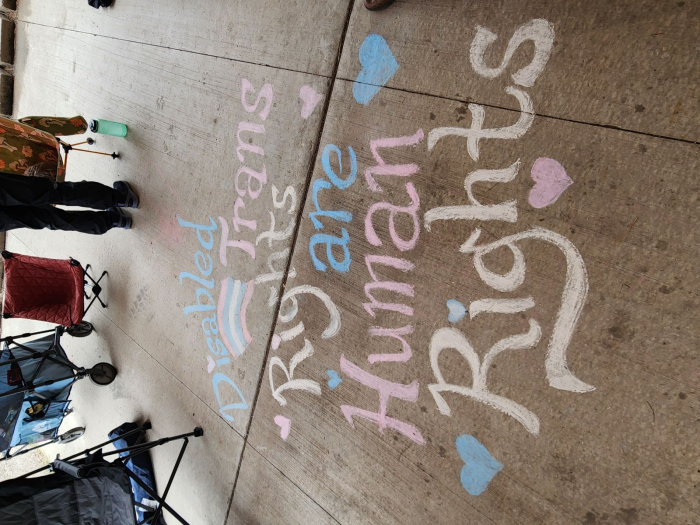 Disabled
Trans
Rights
are
Human
Rights